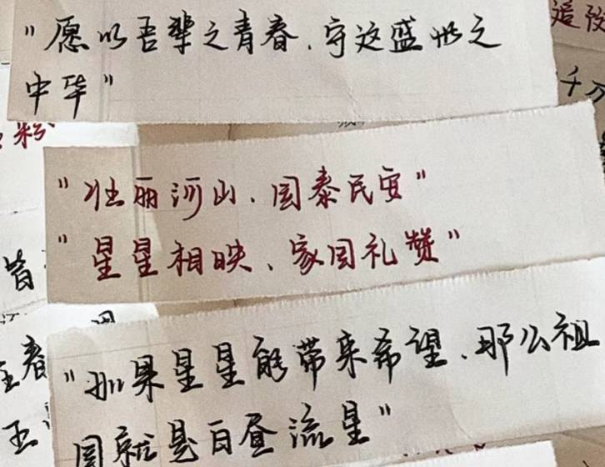 "愿以吾辈之青春、守这盛世之
中华"
"壮丽河山、国泰民安"
"星星相映、家国礼赞"
"如果星星能带来希望、那么祖
国就是白昼流星"